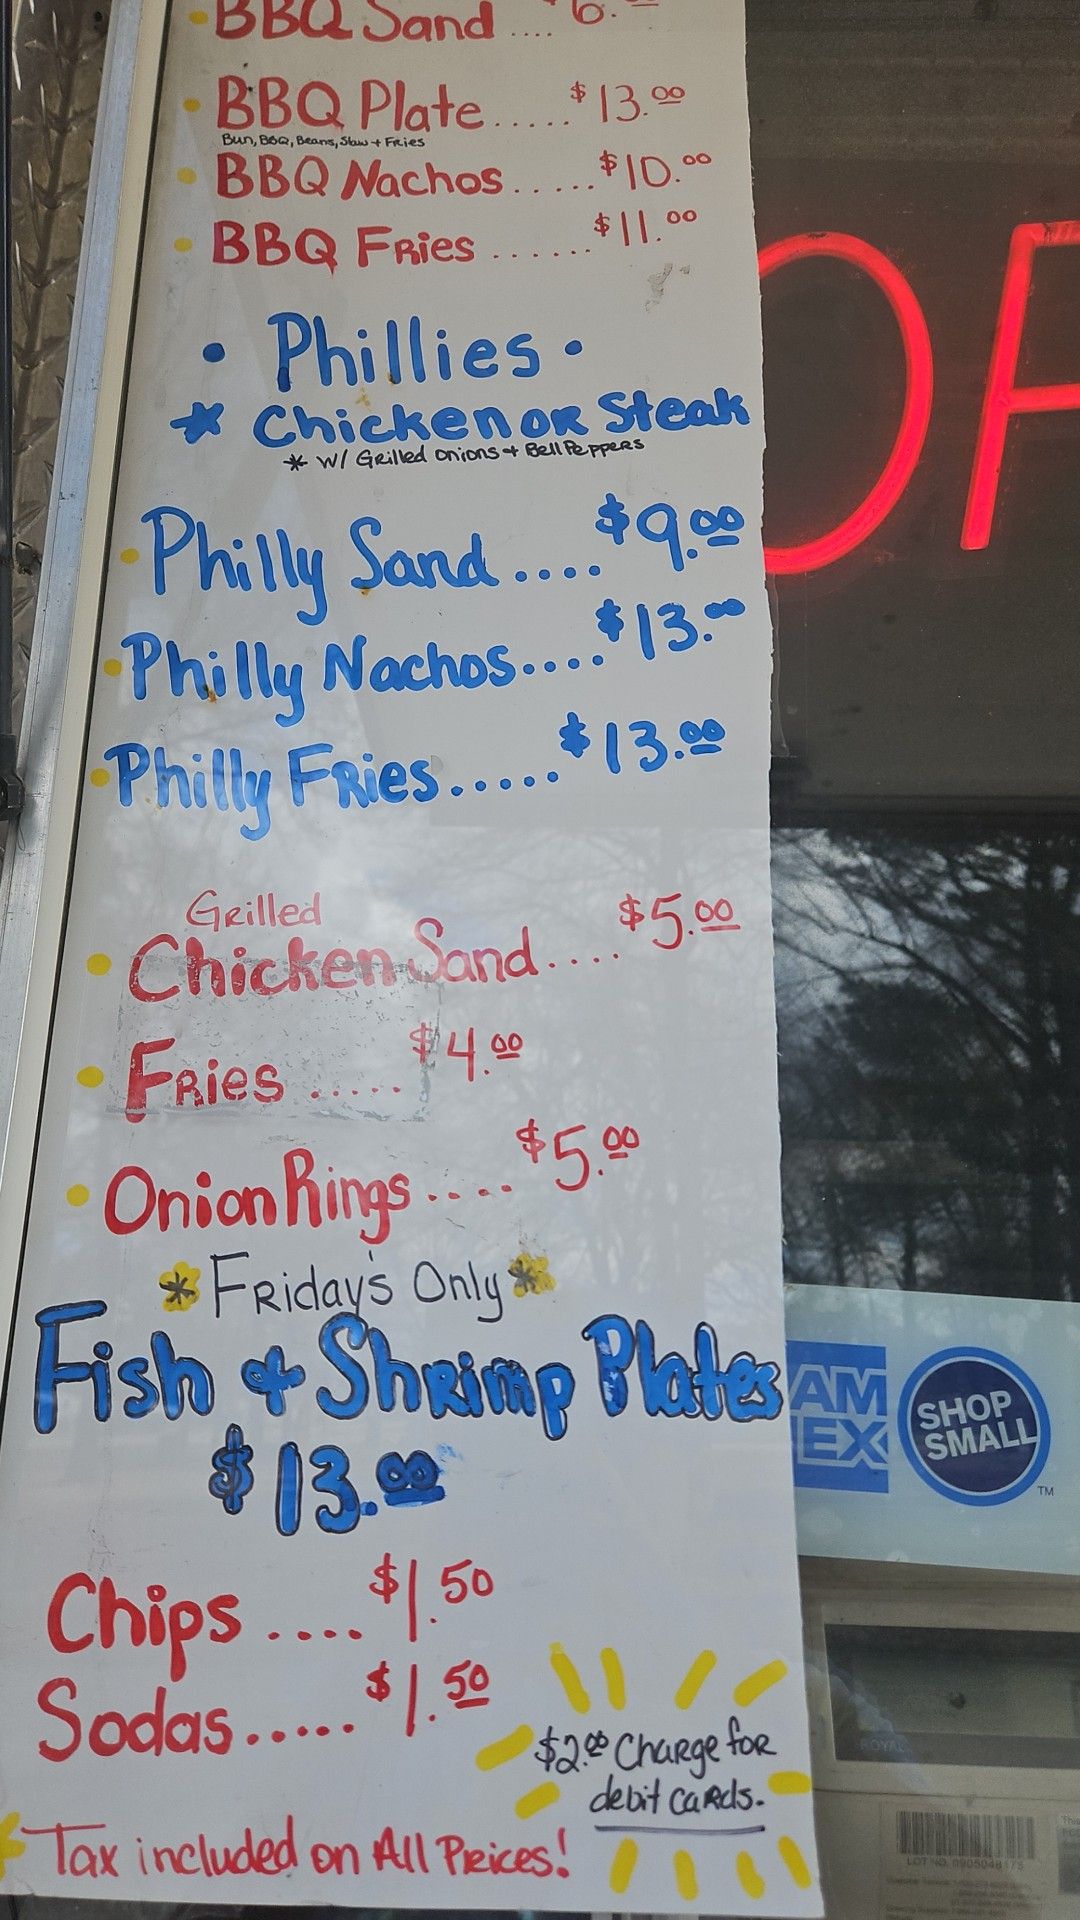 BBQ Sand .... $6.
BBQ Plate ..... $13.00
Bun, BBQ, Beans, Slaw + Fries
BBQ Nachos ..... $10.00
BBQ Fries ...... $11.00
• Phillies •
* Chicken or Steak
* W/ Grilled Onions + Bell Peppers
Philly Sand .... $9.00
Philly Nachos .... $13.00
Philly Fries ..... $13.00
Grilled
Chicken Sand .... $5.00
Fries ..... $4.00
Onion Rings .... $5.00
* Friday's Only *
Fish + Shrimp Plates
$13.00
Chips .... $1.50
Sodas ..... $1.50
$2.00 Charge for
debit cards.
Tax included on All Prices!
AM
EX
SHOP
SMALL
TM
ROYAL